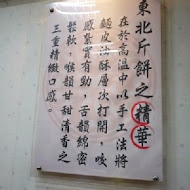 東北斤餅之精華
在於高溫中以手工法將
麵皮油酥層次打開，咬
感紮實有勁，舌韻綿密
鬆軟，喉韻甘甜清香之
三重精緻口感。